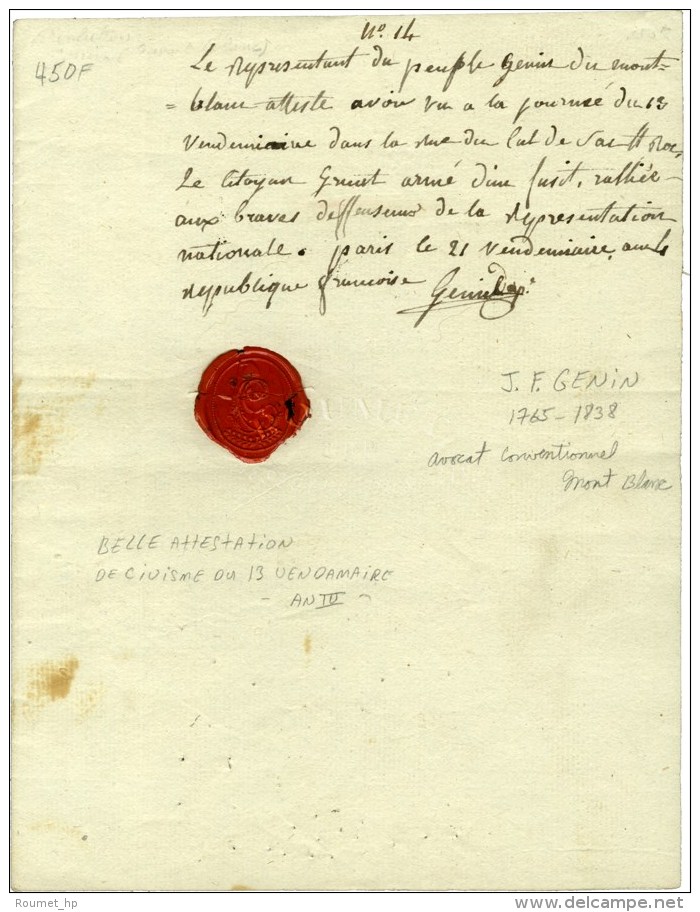 N° 14
450F
Le Representant du peuple Genin du mont-
= blanc atteste avoir vu a la journée du 13
Vendemiaire dans la rue du Cul de Sac St Roc,
Le Citoyen armé d'un fusil, ralliée
aux braves deffenseurs de la Representation
nationale. paris le 21 Vendemiaire, an 4
Republique francoise Genin dep.
J. F. GENIN
1765-1838
avocat conventionnel
Mont Blanc
BELLE ATTESTATION
DE CIVISME DU 13 VENDAMAIRE
- AN IV -
Roumet_hp
delcampe.net